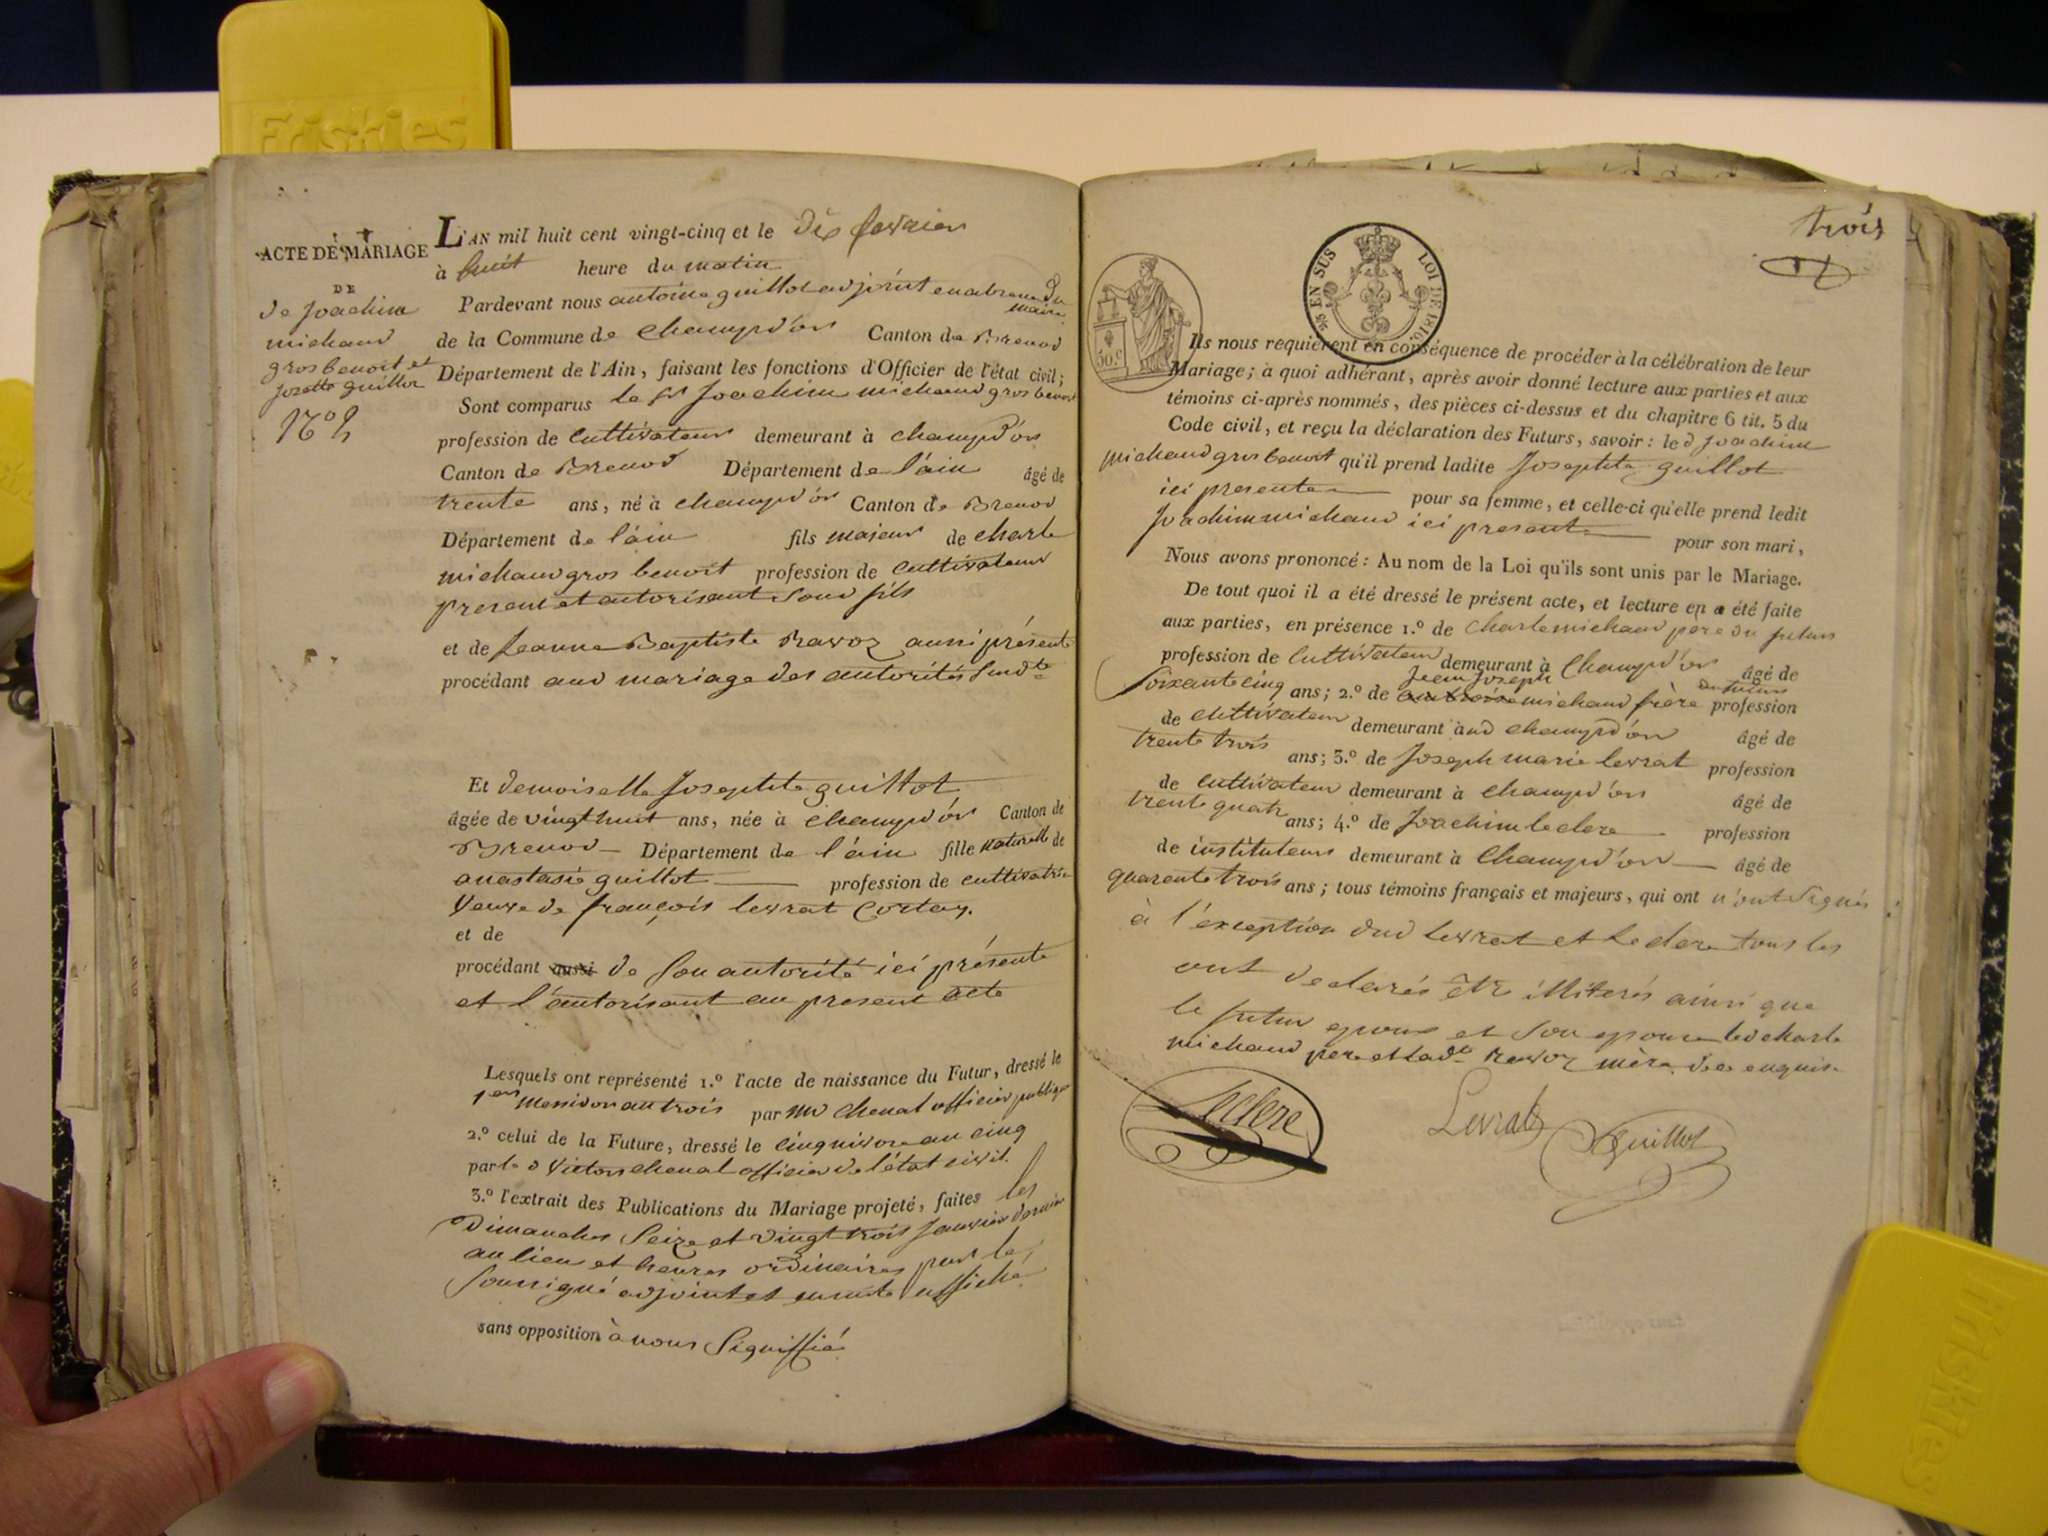 Friskies
ACTE DE MARIAGE
DE
de Joachim
michaud
gros benoit et
Josette guillot
N° 2
L'AN mil huit cent vingt-cinq et le dix fevrier
à huit heure du matin
Pardevant nous antoine guillot adjoint en absence du maire
de la Commune de Champd'or Canton de Brenod
Département de l'Ain, faisant les fonctions d'Officier de l'état civil;
Sont comparus le Sr Joachim michaud gros benoit
profession de Cultivateur demeurant à champd'or
Canton de Brenod Département de l'ain âgé de
trente ans, né à champd'or Canton de Brenod
Département de l'ain fils majeur de charle
michaud gros benoit profession de cultivateur
present et autorisant Soud fils
et de Jeanne Baptiste Ravoz aussi présente
procédant aud mariage des autorités Susdte
Et demoiselle Josephte guillot
âgée de vingt huit ans, née à champd'or Canton de
Brenod Département de l'ain fille naturelle de
anastasie guillot profession de cultivatrice
Veuve de françois levrat Cortay.
et de
procédant aussi de Son autorité ici présente
et l'autorisant au present acte
Lesquels ont représenté 1.° l'acte de naissance du Futur, dressé le
1er Messidor an trois par mr Chenal officier publique
2.° celui de la Future, dressé le cinq nivose an cinq
par le d Victor chenal officier de l'état civil.
3.° l'extrait des Publications du Mariage projeté, faites les
Dimanches Seize et vingt trois Janvier dernier
au lieu et heures ordinaires par le
Soussigné adjoint et ensuite affiché
sans opposition à nous Signiffié
trois
EN SUS LOI DE 1816
50.c
Ils nous requièrent en conséquence de procéder à la célébration de leur
Mariage; à quoi adhérant, après avoir donné lecture aux parties et aux
témoins ci-après nommés, des pièces ci-dessus et du chapitre 6 tit. 5 du
Code civil, et reçu la déclaration des Futurs, savoir: le d Joachim
michaud gros benoit qu'il prend ladite Josephte guillot
ici presente pour sa femme, et celle-ci qu'elle prend ledit
Joachim michaud ici present pour son mari,
Nous avons prononcé: Au nom de la Loi qu'ils sont unis par le Mariage.
De tout quoi il a été dressé le présent acte, et lecture en a été faite
aux parties, en présence 1.° de Charle michaud père du futur
profession de Cultivateur demeurant à Champd'or âgé de
Soixante cinq ans; 2.° de Jean Joseph michaud frère du futur profession
de cultivateur demeurant aud champd'or âgé de
trente trois ans; 3.° de Joseph marie levrat profession
de cultivateur demeurant à champd'or âgé de
trente quatre ans; 4.° de Joachim leclere profession
de instituteur demeurant à Champd'or âgé de
quarente trois ans; tous témoins français et majeurs, qui ont n'ont Signés
à l'exception dud levrat et Leclere tous les
ont declarés être illiterés ainsi que
le futur epoux et son epouse led charle
michaud pere et ladte ravoz mère de ce enquis.
Leclere
Levrat
Guillot
Friskies